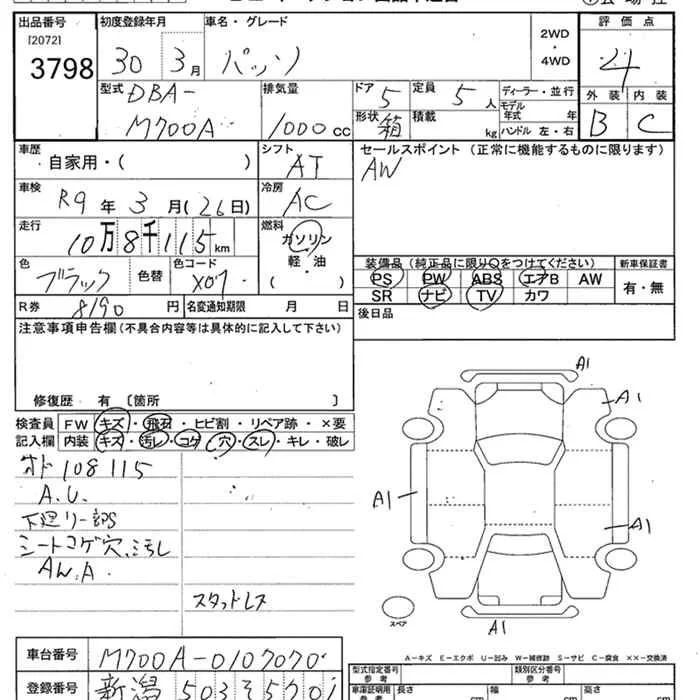 出品番号 初度登録年月 車名・グレード 評価点
[2072]
3798 30 3月 パッソ 2WD ・ 4WD 4
型式 排気量 ドア 定員 ディーラー・並行 外装 内装
DBA- 5 5人 モデル年式 年
M700A 1000cc 形状 箱 積載 kg ハンドル 左・右 B C
車歴 シフト セールスポイント (正常に機能するものに限ります)
自家用・( ) AT AW
車検 冷房
R9年 3月(26日) AC
走行 燃料
10万8千115km ガソリン
色 色替 色コード 軽・油 装備品 (純正品に限り○をつけてください) 新車保証書
ブラック X07 ( ) PS PW ABS エアB AW 有・無
SR ナビ TV カワ
R券 8190円 名変通知期限 月 日 後日品
注意事項申告欄(不具合内容等は具体的に記入して下さい)
修復歴 有 〔箇所 〕
検査員 FW キズ・飛石・ヒビ割・リペア跡・×要
記入欄 内装 キズ・汚レ・コゲ・穴・スレ・キレ・破レ
オド108115
A.U.
下廻リ一部S
シートコゲ穴、汚レ
AW.A
スタッドレス
A1
A1
A1
A1
A1
スペア
A−キズ E−エクボ U−凹み W−補修跡 S−サビ C−腐食 ××−交換済
車台番号 M700A-0107070 型式指定番号 類別区分番号
参考 参考
登録番号 新潟 503 そ 5701 車庫証明用 長さ cm 幅 cm 高さ cm
参考